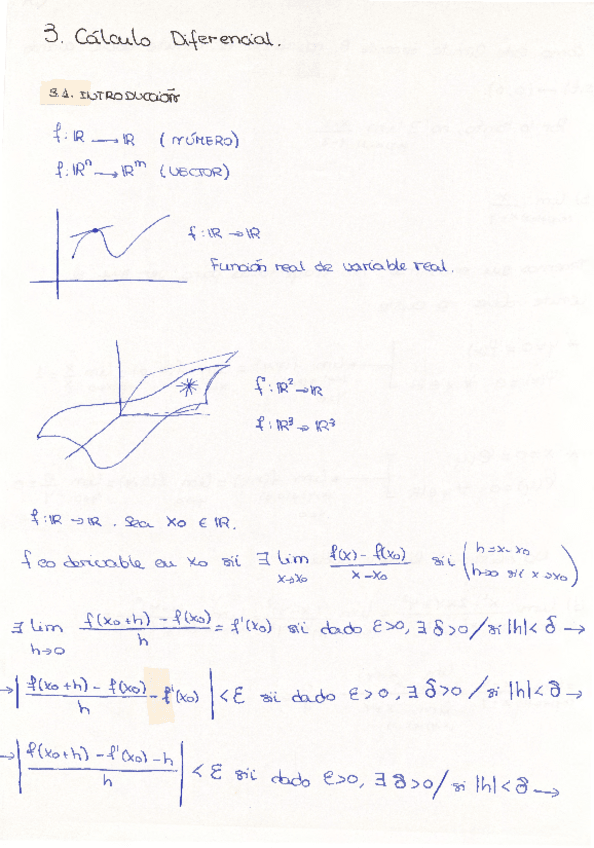 3. Cálculo Diferencial.
3.1. INTRODUCCIÓN
f: ℝ → ℝ (NÚMERO)
f: ℝⁿ → ℝᵐ (VECTOR)
f: ℝ → ℝ
Función real de variable real.
f: ℝ² → ℝ
f: ℝ³ → ℝ³
f: ℝ → ℝ. Sea x₀ ∈ ℝ.
f es derivable en x₀ sii ∃ lim x→x₀ (f(x) - f(x₀))/(x - x₀) sii (h = x - x₀ h→0 sii x→x₀)
∃ lim h→0 (f(x₀+h) - f(x₀))/h = f'(x₀) sii dado ε>0, ∃ δ>0 / si |h| < δ →
→ |(f(x₀+h) - f(x₀))/h - f'(x₀)| < ε sii dado ε>0, ∃ δ>0 / si |h| < δ →
→ |(f(x₀+h) - f'(x₀) - h)/h| < ε sii dado ε>0, ∃ δ>0 / si |h| < δ →